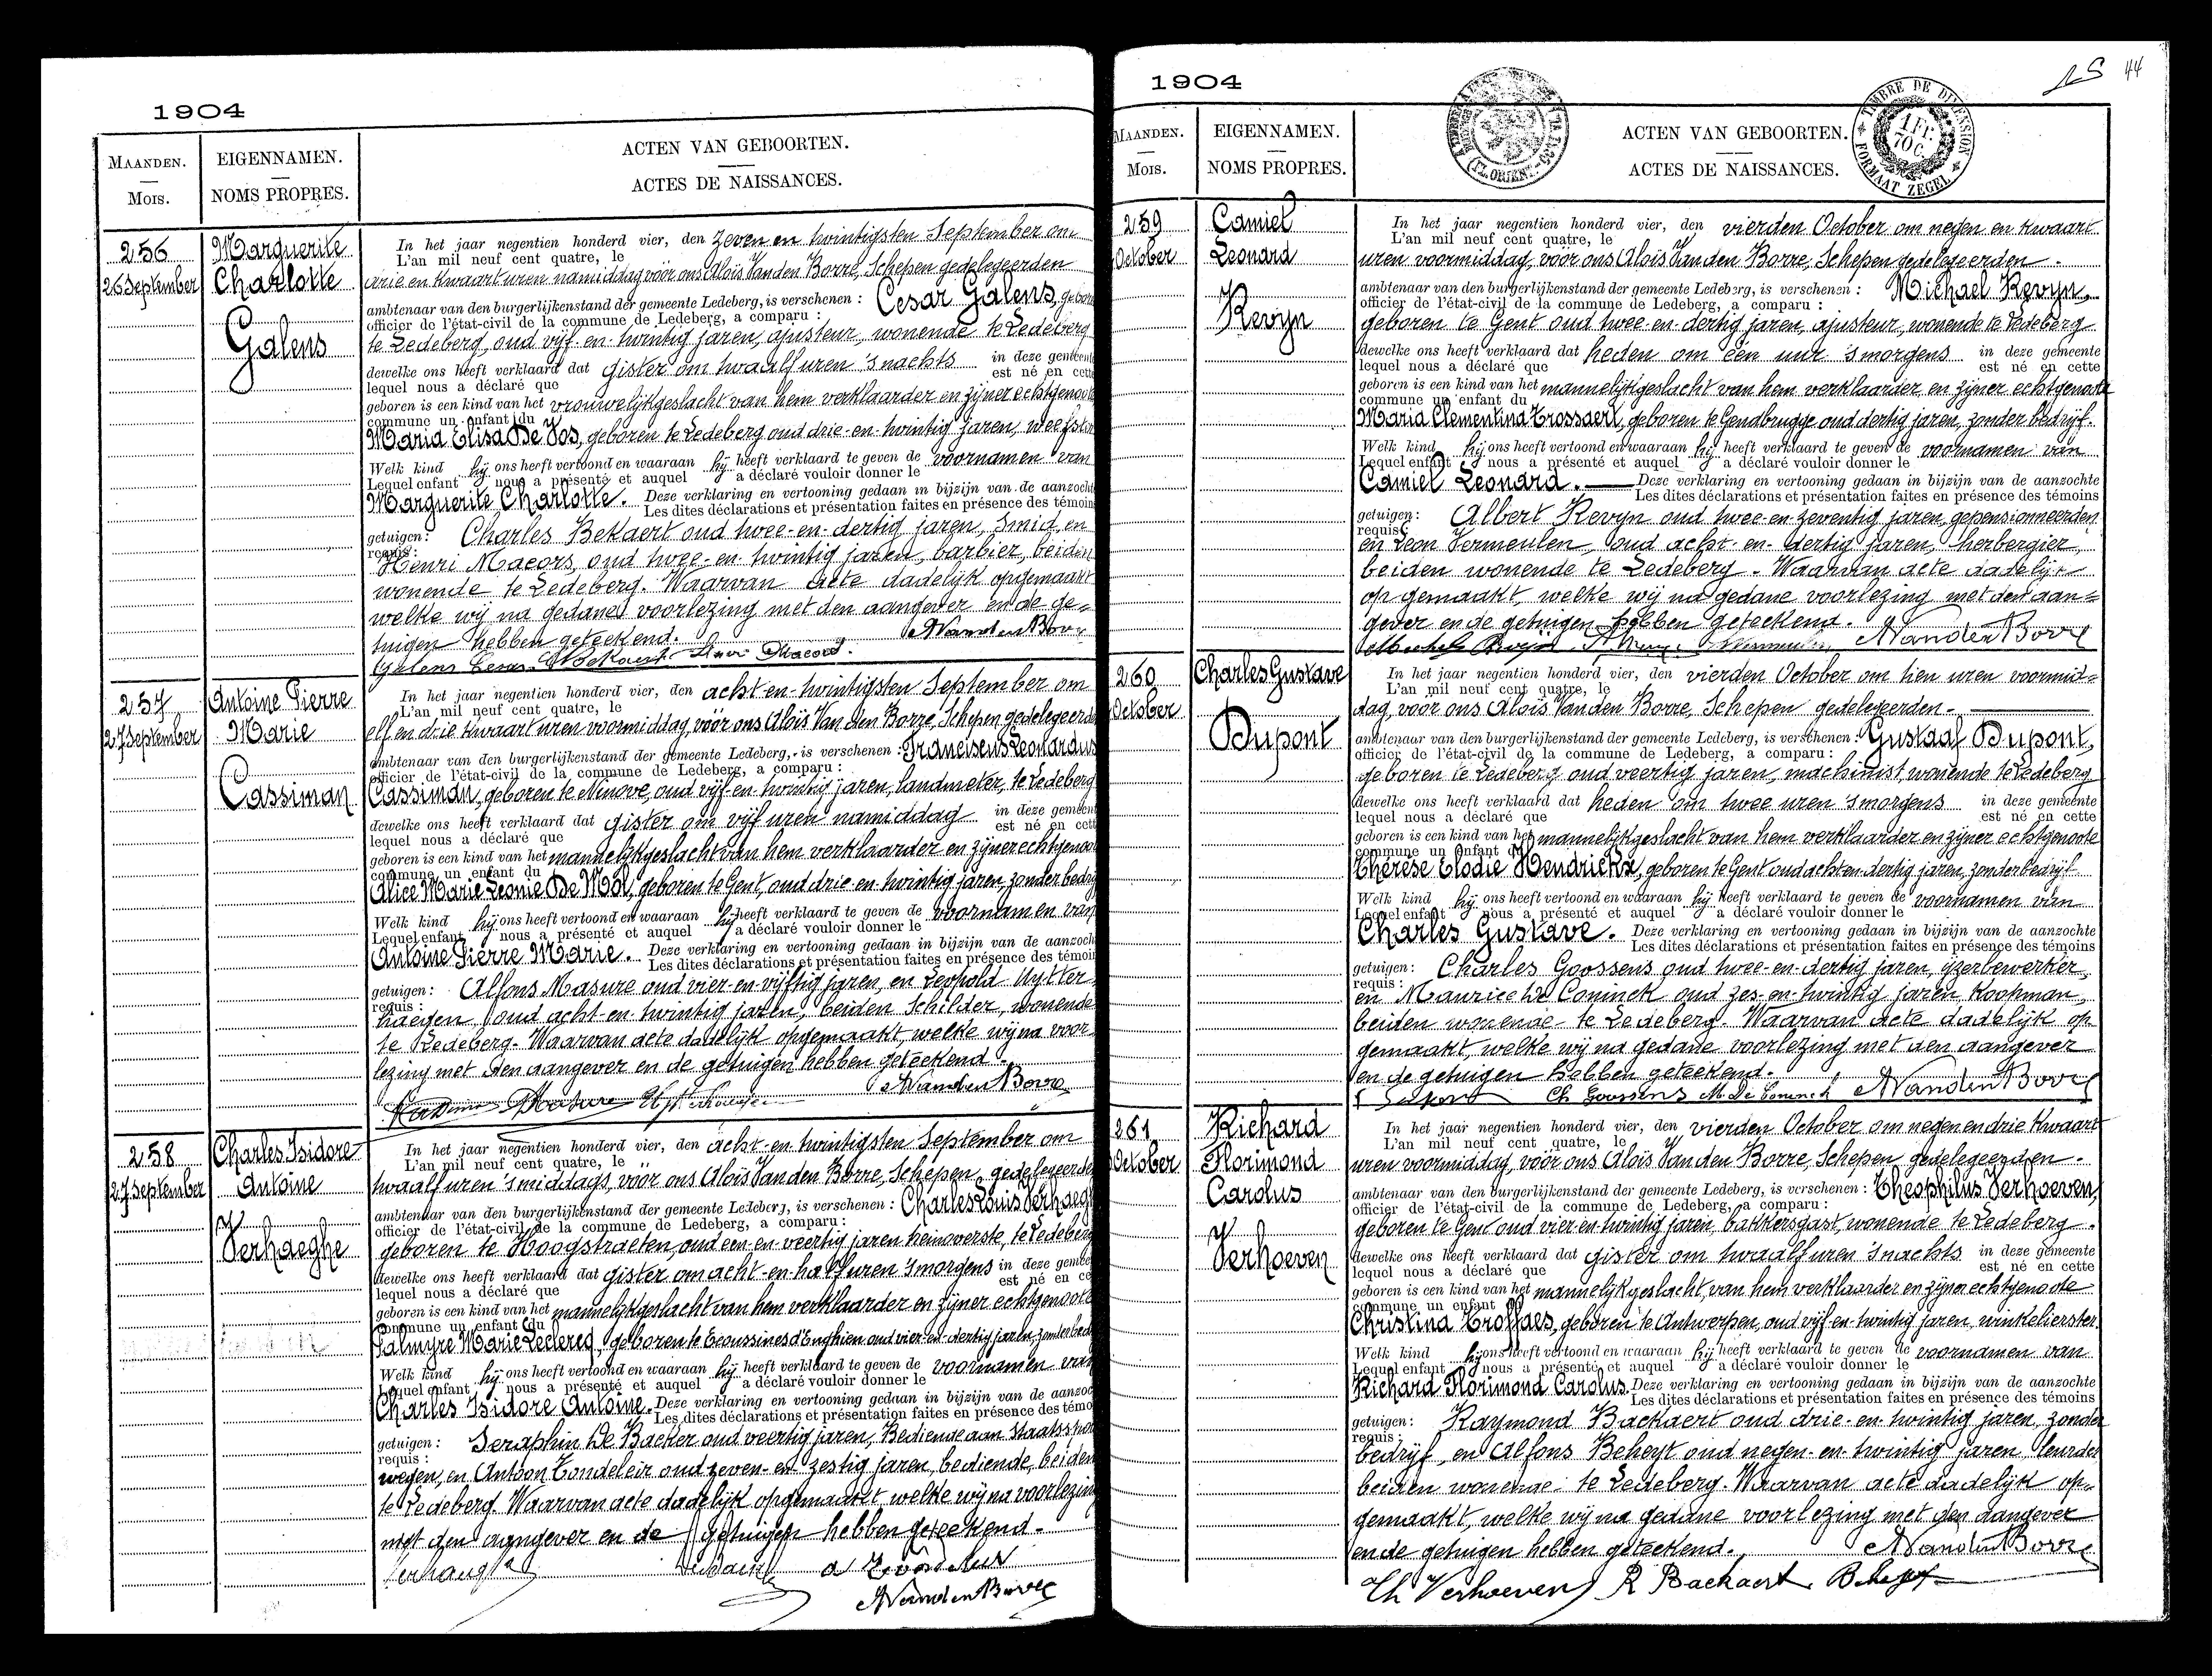 1904
MAANDEN.
Mois.
EIGENNAMEN.
NOMS PROPRES.
ACTEN VAN GEBOORTEN.
ACTES DE NAISSANCES.
256
26 September
Marguerite
Charlotte
Galens
In het jaar negentien honderd vier, den zeven en twintigsten September om
L'an mil neuf cent quatre, le
drie en kwaart uren namiddag vóór ons Aloïs Van den Borre, Schepen gedelegeerden
ambtenaar van den burgerlijkenstand der gemeente Ledeberg, is verschenen : Cesar Galens, gebore
officier de l'état-civil de la commune de Ledeberg, a comparu :
te Ledeberg, oud vijf-en-twintig jaren, ajusteur, wonende te Ledeberg
dewelke ons heeft verklaard dat gister om twaalf uren 's nachts in deze gemeente
lequel nous a déclaré que est né en cette
geboren is een kind van het vrouwelijkgeslacht van hem verklaarder en zijner echtgenoote
commune un enfant du
Maria Elisa De Vos, geboren te Ledeberg oud drie-en-twintig jaren, weefster
Welk kind hij ons heeft vertoond en waaraan hij heeft verklaard te geven de voornamen van
Lequel enfant nous a présenté et auquel a déclaré vouloir donner le
Marguerite Charlotte. Deze verklaring en vertooning gedaan in bijzijn van de aanzocht
Les dites déclarations et présentation faites en présence des témoins
getuigen : Charles Bekaert oud twee-en-dertig jaren, smid en
requis :
Henri Macors, oud twee-en-twintig jaren, barbier, beiden
wonende te Ledeberg. Waarvan acte dadelijk opgemaakt
welke wij na gedane voorlezing met den aangever en de ge=
tuigen hebben geteekend. AVandenBorre
Galens Cesar Ch Bekaert Henri Macors.
257
27 September
Antoine Pierre
Marie
Cassiman
In het jaar negentien honderd vier, den acht-en-twintigsten September om
L'an mil neuf cent quatre, le
elf en drie kwaart uren voormiddag, vóór ons Aloïs Van den Borre, Schepen gedelegeerde
ambtenaar van den burgerlijkenstand der gemeente Ledeberg, is verschenen : Franciscus Leonardus
officier de l'état-civil de la commune de Ledeberg, a comparu :
Cassiman, geboren te Ninove, oud vijf-en-twintig jaren, landmeter, te Ledeberg
dewelke ons heeft verklaard dat gister om vijf uren namiddag in deze gemeent
lequel nous a déclaré que est né en cett
geboren is een kind van het mannelijkgeslacht van hem verklaarder en zijner echtgenoot
commune un enfant du
Alice Marie Leonie De Mol, geboren te Gent, oud drie-en-twintig jaren, zonder bedrij
Welk kind hij ons heeft vertoond en waaraan hij heeft verklaard te geven de voornamen van
Lequel enfant nous a présenté et auquel a déclaré vouloir donner le
Antoine Pierre Marie. Deze verklaring en vertooning gedaan in bijzijn van de aanzoch
Les dites déclarations et présentation faites en présence des témoin
getuigen : Alfons Masure oud vier-en-vijftig jaren, en Leopold Uytter
requis :
haegen, oud acht-en-twintig jaren, beiden Schilder, wonende
te Ledeberg. Waarvan acte dadelijk opgemaakt, welke wij na voor
lezing met den aangever en de getuigen hebben geteekend.
AVandenBorre
Masure
258
27 September
Charles Isidore
Antoine
Verhaeghe
In het jaar negentien honderd vier, den acht-en-twintigsten September om
L'an mil neuf cent quatre, le
twaalf uren 's middags, vóór ons Aloïs Van den Borre, Schepen gedelegeerden
ambtenaar van den burgerlijkenstand der gemeente Ledeberg, is verschenen : Charles Louis Verhaegh
officier de l'état-civil de la commune de Ledeberg, a comparu :
geboren te Hoogstraeten, oud een-en-veertig jaren heinoverste, te Ledeberg
dewelke ons heeft verklaard dat gister om acht-en-half uren 's morgens in deze gemee
lequel nous a déclaré que est né en ce
geboren is een kind van het mannelijkgeslacht van hem verklaarder en zijner echtgenoote
commune un enfant du
Palmyre Marie Leclercq, geboren te Ecoussines d'Enghien oud vier-en-dertig jaren, zonder bed
Welk kind hij ons heeft vertoond en waaraan hij heeft verklaard te geven de voornamen van
Lequel enfant nous a présenté et auquel a déclaré vouloir donner le
Charles Isidore Antoine. Deze verklaring en vertooning gedaan in bijzijn van de aanzoc
Les dites déclarations et présentation faites en présence des témo
getuigen : Seraphin De Backer oud veertig jaren, Bediende aan Staatsspoor
requis :
wegen, en Antoon Tondeleir oud zeven-en-zestig jaren, bediende, beiden
te Ledeberg. Waarvan acte dadelijk opgemaakt, welke wij na voorlezing
met den aangever en de getuigen hebben geteekend.
AVandenBorre
1904
44
MAANDEN.
Mois.
EIGENNAMEN.
NOMS PROPRES.
ACTEN VAN GEBOORTEN.
ACTES DE NAISSANCES.
TIMBRE DE DIMENSION
1 FR.
70 C.
FORMAAT ZEGEL
259
October
Camiel
Leonard
Kevyn
In het jaar negentien honderd vier, den vierden October om negen en kwaart
L'an mil neuf cent quatre, le
uren voormiddag, vóór ons Aloïs Van den Borre, Schepen gedelegeerden.
ambtenaar van den burgerlijkenstand der gemeente Ledeberg, is verschenen : Michael Kevyn,
officier de l'état-civil de la commune de Ledeberg, a comparu :
geboren te Gent oud twee-en-dertig jaren, ajusteur, wonende te Ledeberg
dewelke ons heeft verklaard dat heden om één uur 's morgens in deze gemeente
lequel nous a déclaré que est né en cette
geboren is een kind van het mannelijkgeslacht van hem verklaarder en zijner echtgenoote
commune un enfant du
Maria Clementina Trossaert, geboren te Gendbrugge oud dertig jaren, zonder bedrijf.
Welk kind hij ons heeft vertoond en waaraan hij heeft verklaard te geven de voornamen van
Lequel enfant nous a présenté et auquel a déclaré vouloir donner le
Camiel Leonard. Deze verklaring en vertooning gedaan in bijzijn van de aanzochte
Les dites déclarations et présentation faites en présence des témoins
getuigen : Albert Kevyn oud twee-en-zeventig jaren, gepensionneerden
requis :
en Leon Vermeulen, oud acht-en-dertig jaren, herbergier,
beiden wonende te Ledeberg. Waarvan acte dadelijk
op gemaakt, welke wij na gedane voorlezing met den aan=
gever en de getuigen hebben geteekend.
AVandenBorre
260
October
Charles Gustave
Dupont
In het jaar negentien honderd vier, den vierden October om tien uren voormid=
L'an mil neuf cent quatre, le
dag, vóór ons Aloïs Van den Borre, Schepen gedelegeerden.
ambtenaar van den burgerlijkenstand der gemeente Ledeberg, is verschenen : Gustaaf Dupont,
officier de l'état-civil de la commune de Ledeberg, a comparu :
geboren te Ledeberg oud veertig jaren, machinist, wonende te Ledeberg
dewelke ons heeft verklaard dat heden om twee uren 's morgens in deze gemeente
lequel nous a déclaré que est né en cette
geboren is een kind van het mannelijkgeslacht van hem verklaarder en zijner echtgenoote
commune un enfant du
Thérèse Elodie Hendrickx, geboren te Gent oud acht-en-dertig jaren, zonder bedrijf
Welk kind hij ons heeft vertoond en waaraan hij heeft verklaard te geven de voornamen van
Lequel enfant nous a présenté et auquel a déclaré vouloir donner le
Charles Gustave. Deze verklaring en vertooning gedaan in bijzijn van de aanzochte
Les dites déclarations et présentation faites en présence des témoins
getuigen : Charles Goossens oud twee-en-dertig jaren, ijzerbewerker,
requis :
en Maurice De Coninck oud zes-en-twintig jaren koopman,
beiden wonende te Ledeberg. Waarvan acte dadelijk op
gemaakt, welke wij na gedane voorlezing met den aangever
en de getuigen hebben geteekend.
Ch Goossens M. De Coninck AVandenBorre
261
October
Richard
Florimond
Carolus
Verhoeven
In het jaar negentien honderd vier, den vierden October om negen en drie kwaart
L'an mil neuf cent quatre, le
uren voormiddag, vóór ons Aloïs Van den Borre, Schepen gedelegeerden.
ambtenaar van den burgerlijkenstand der gemeente Ledeberg, is verschenen : Theophilus Verhoeven,
officier de l'état-civil de la commune de Ledeberg, a comparu :
geboren te Gent oud vier-en-twintig jaren, bakkersgast, wonende te Ledeberg.
dewelke ons heeft verklaard dat gister om twaalf uren 's nachts in deze gemeente
lequel nous a déclaré que est né en cette
geboren is een kind van het mannelijkgeslacht, van hem verklaarder en zijner echtgenoote
commune un enfant
Christina Troffaes, geboren te Antwerpen, oud vijf-en-twintig jaren, winkelierster
Welk kind hij ons heeft vertoond en waaraan hij heeft verklaard te geven de voornamen van
Lequel enfant nous a présenté et auquel a déclaré vouloir donner le
Richard Florimond Carolus. Deze verklaring en vertooning gedaan in bijzijn van de aanzochte
Les dites déclarations et présentation faites en présence des témoins
getuigen : Raymond Backaert oud drie-en-twintig jaren, zonder
requis :
bedrijf, en Alfons Beheyt oud negen-en-twintig jaren leurder
beiden wonende te Ledeberg. Waarvan acte dadelijk op=
gemaakt, welke wij na gedane voorlezing met den aangever
en de getuigen hebben geteekend. AVandenBorre
Th Verhoeven R Backaert Beheyt